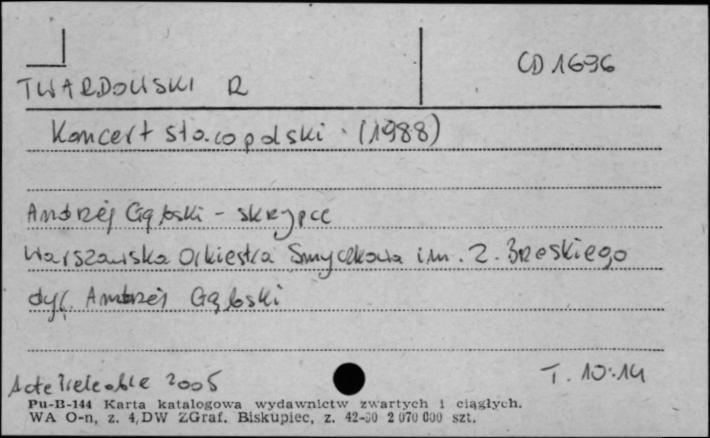 CD 1696
TWARDOWSKI R
Koncert staropolski. (1988)
Andrzej Gębski - skrzypce
Warszawska Orkiestra Smyczkowa im. Z. Brzeskiego
dyr. Andrzej Gębski
Acte Prealable 2005
T. 10:14
Pu-B-144 Karta katalogowa wydawnictw zwartych i ciągłych.
WA O-n, z. 4, DW ZGraf. Biskupiec, z. 42-80 2 070 000 szt.